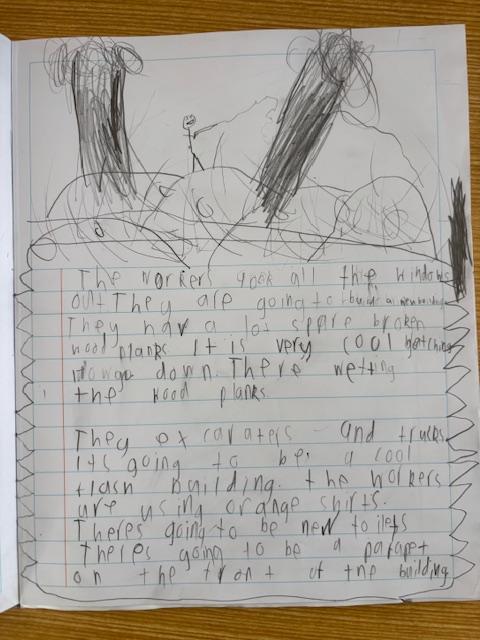 The workers took all the windows
out They are going to build a new building
They hav a lot spare broken
wood planks It is very cool watching
it go down. There wetting
the wood planks.
They excavaters and trucks
its going to be a cool
flash building. the workers
are using orange shirts.
Theres going to be new toilets
theres going to be a parapet
on the front of the building